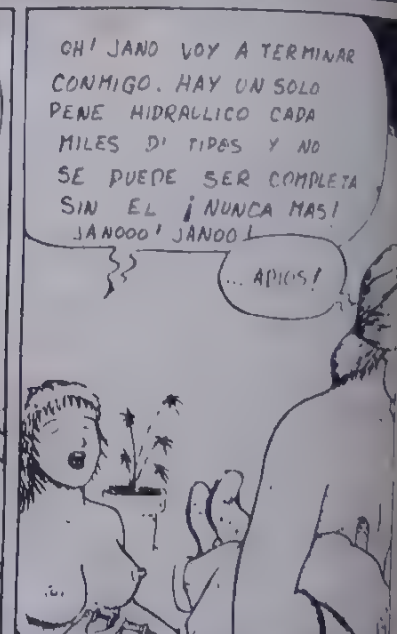 OH! JANO VOY A TERMINAR
CONMIGO. HAY UN SOLO
PENE HIDRAULICO CADA
MILES D' TIPOS Y NO
SE PUEDE SER COMPLETA
SIN EL ¡NUNCA MAS!
JANOOO! JANOO!
... ADIOS!